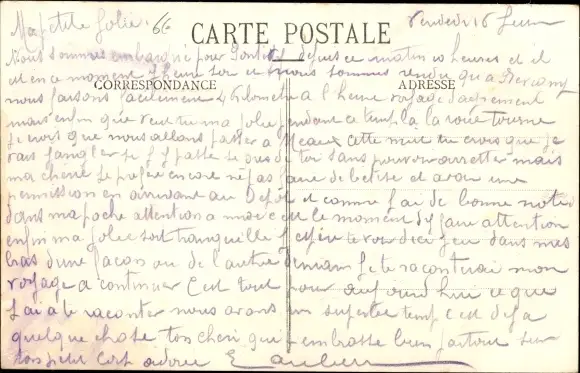 Ma petite Jolie. 66 CARTE POSTALE Vendredi 16
Nous sommes embarqué pour depuis ce matin 10 heures et il
est en ce moment 7 heure soir et nous sommes rendu qu a
CORRESPONDANCE ADRESSE
nous faisons facilement 4 Kilometre a l heure voyage d'agrement
mais enfin que veut tu ma Jolie pendant ce temp la la roue tourne
je crois que nous allons passer a Meaux cette nuit tu crois que je
vais si j y passe pres de toi sans pouvoir arretter mais
ma cherie je prefere encore ne pas faire de betise et avoir une
permission en arrivant au Depôt et comme j ai de bonne notes
dans ma poche attention a moi c est le moment d y faire attention
enfin ma Jolie soit tranquille j espere te voir d ici peu dans mes
bras d une façon ou de l autre demain je te raconterai mon
voyage a continuer c est tout pour aujourd hui ce que
j ai a te raconter nous avons un superbe temp c est deja
quelque chose ton cheri qui t embrasse bien partout sur
ton petit corp adorer E